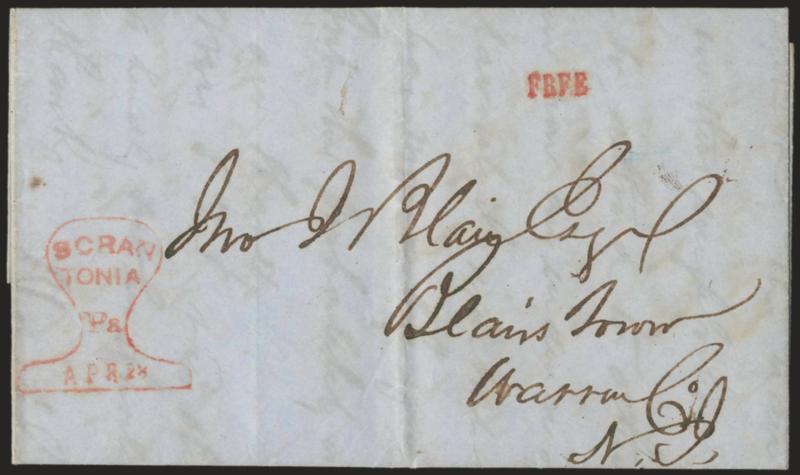 FREE
Jno I Blair Esqr
Blairstown
Warren Co
N.J.
SCRAN
TONIA
Pa
APR 28